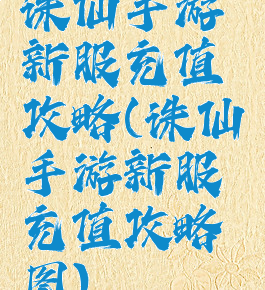 诛仙手游
新服充值
攻略(诛仙
手游新服
充值攻略
图)